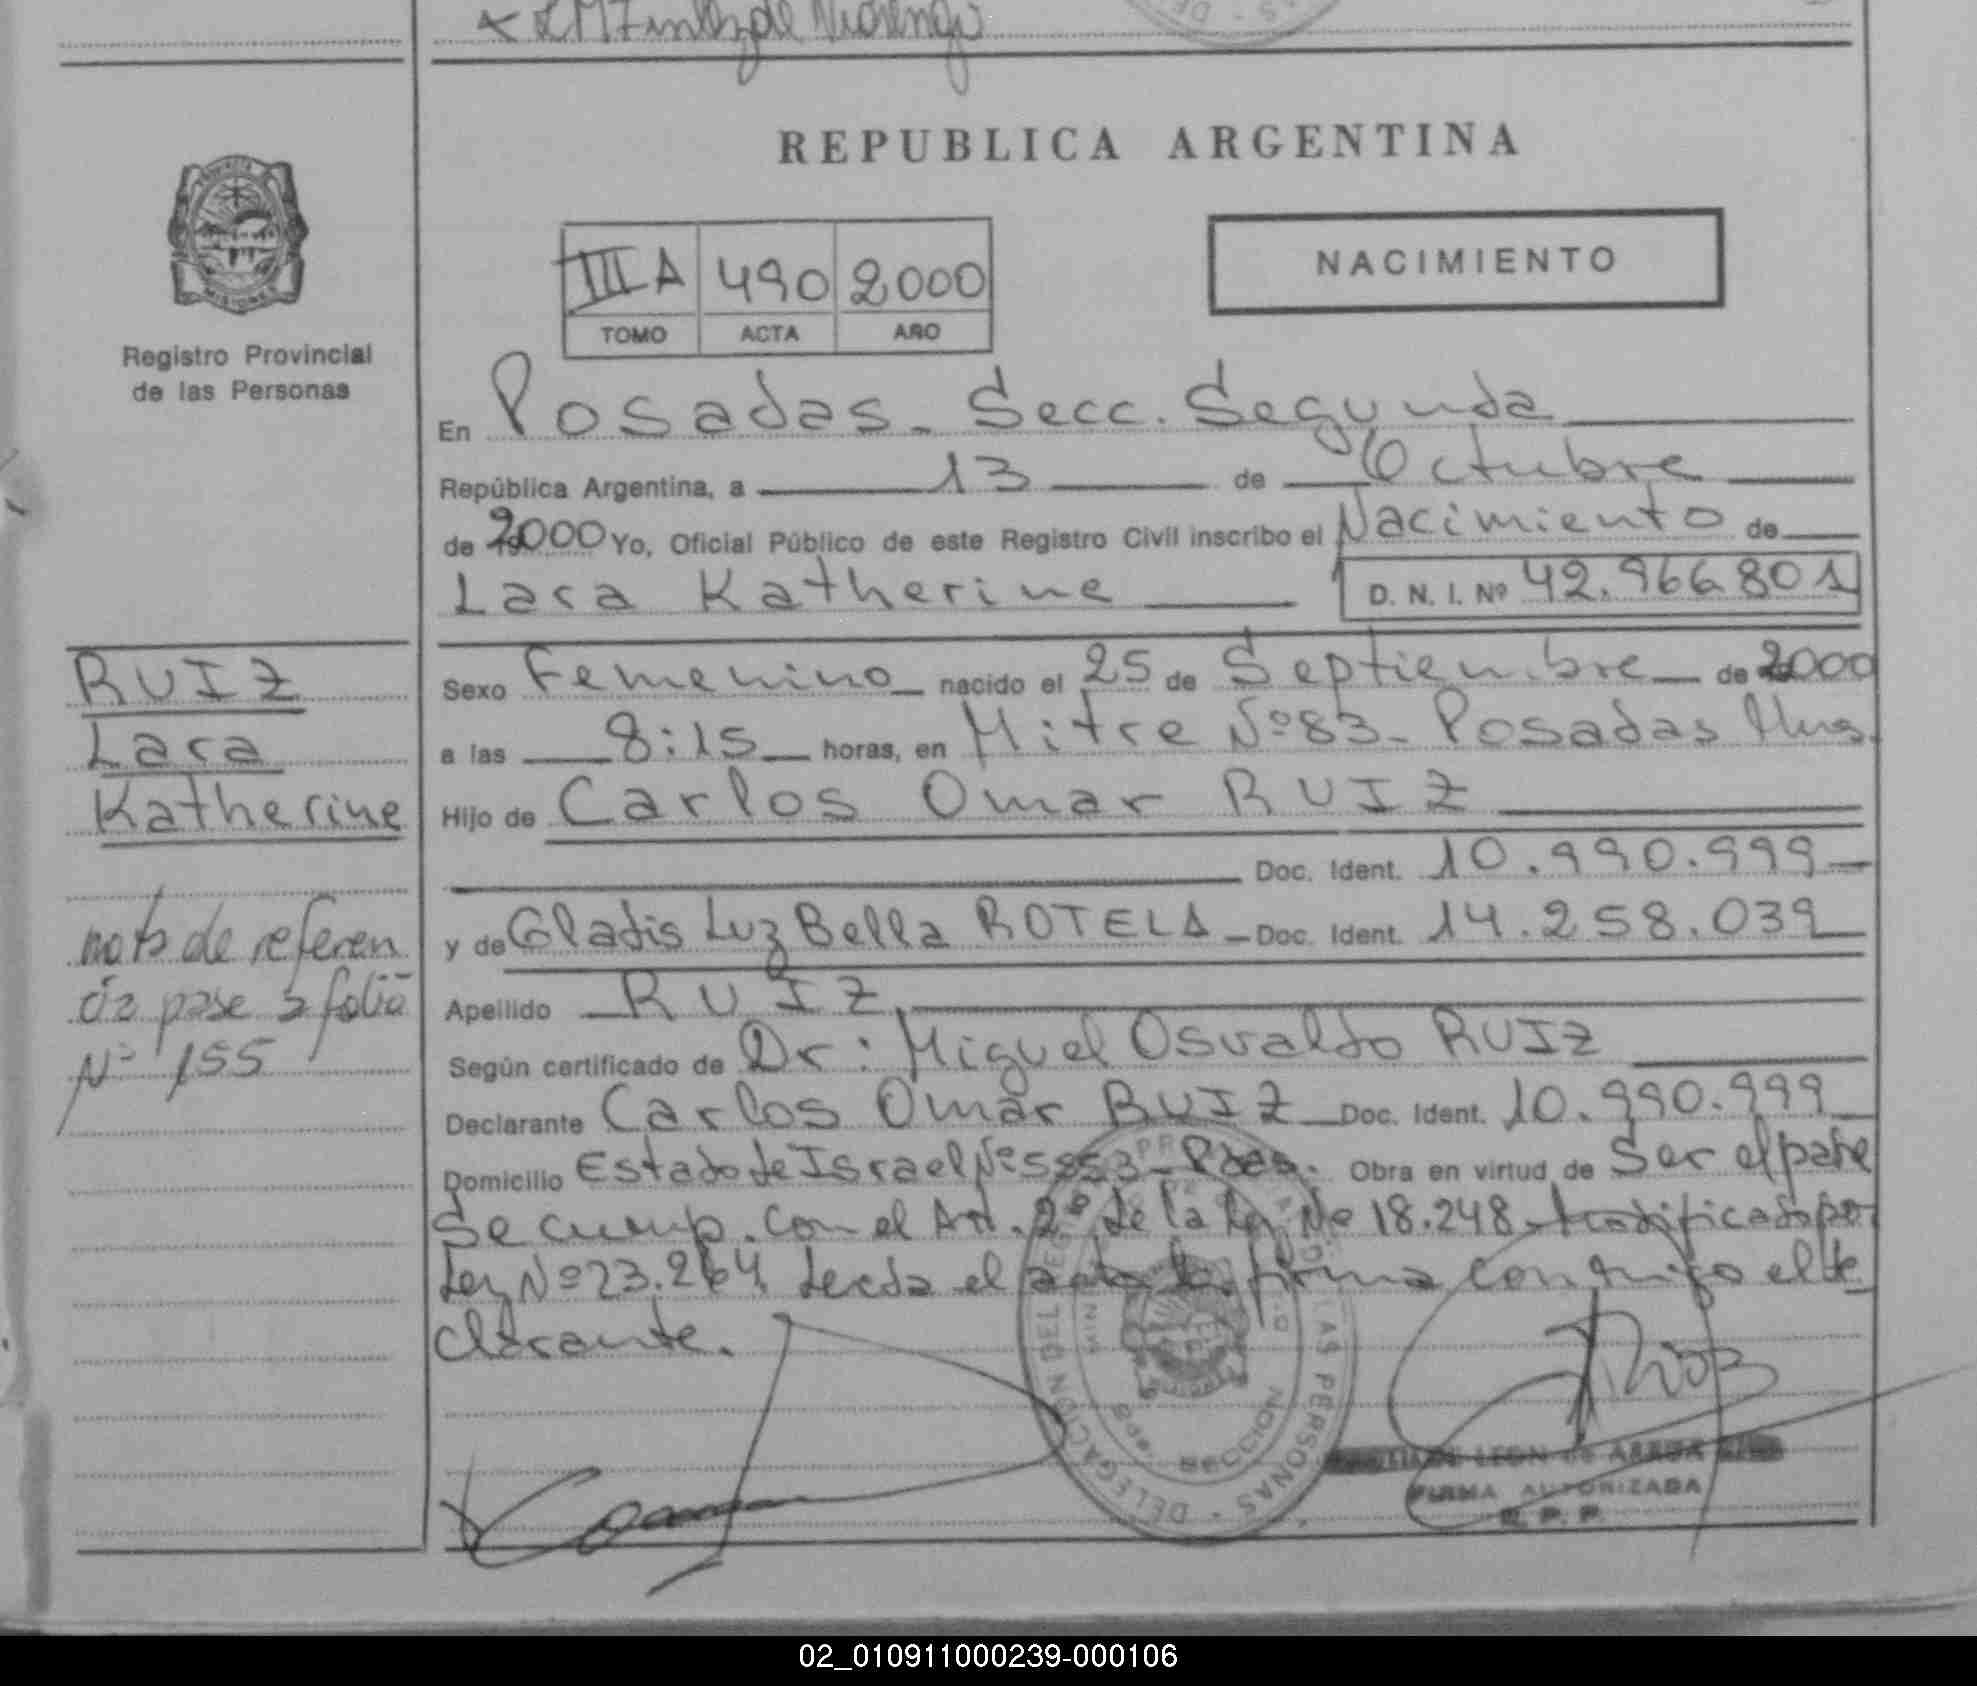 REPUBLICA ARGENTINA
MISIONES
Registro Provincial
de las Personas
III A 490 2000
TOMO ACTA AÑO
NACIMIENTO
En Posadas - Secc. Segunda
República Argentina, a 13 de Octubre
de 2000 Yo, Oficial Público de este Registro Civil inscribo el Nacimiento de
Lara Katherine D. N. I. Nº 42.966.801
RUIZ
Lara
Katherine
Sexo Femenino nacido el 25 de Septiembre de 2000
a las 8:15 horas, en Mitre Nº 83 - Posadas Mns.
Hijo de Carlos Omar RUIZ
Doc. Ident. 10.990.999
y de Gladis Luz Bella ROTELA - Doc. Ident. 14.258.039
nota de referen
cia pase a folio
Nº 155
Apellido RUIZ
Según certificado de Dr: Miguel Osvaldo RUIZ
Declarante Carlos Omar RUIZ Doc. Ident. 10.990.999
Domicilio Estado de Israel Nº 5853 - Pdas. Obra en virtud de Ser el padre
Se cump. con el Art. 2º de la Ley Nº 18.248 modificado por
Ley Nº 23.264. Leida el acta la firma conmigo el de
clarante.
DELEGACION DEL REGISTRO DE LAS PERSONAS
SECCION
LEON DE
FIRMA AUTORIZADA
R. P. P.
02_010911000239-000106